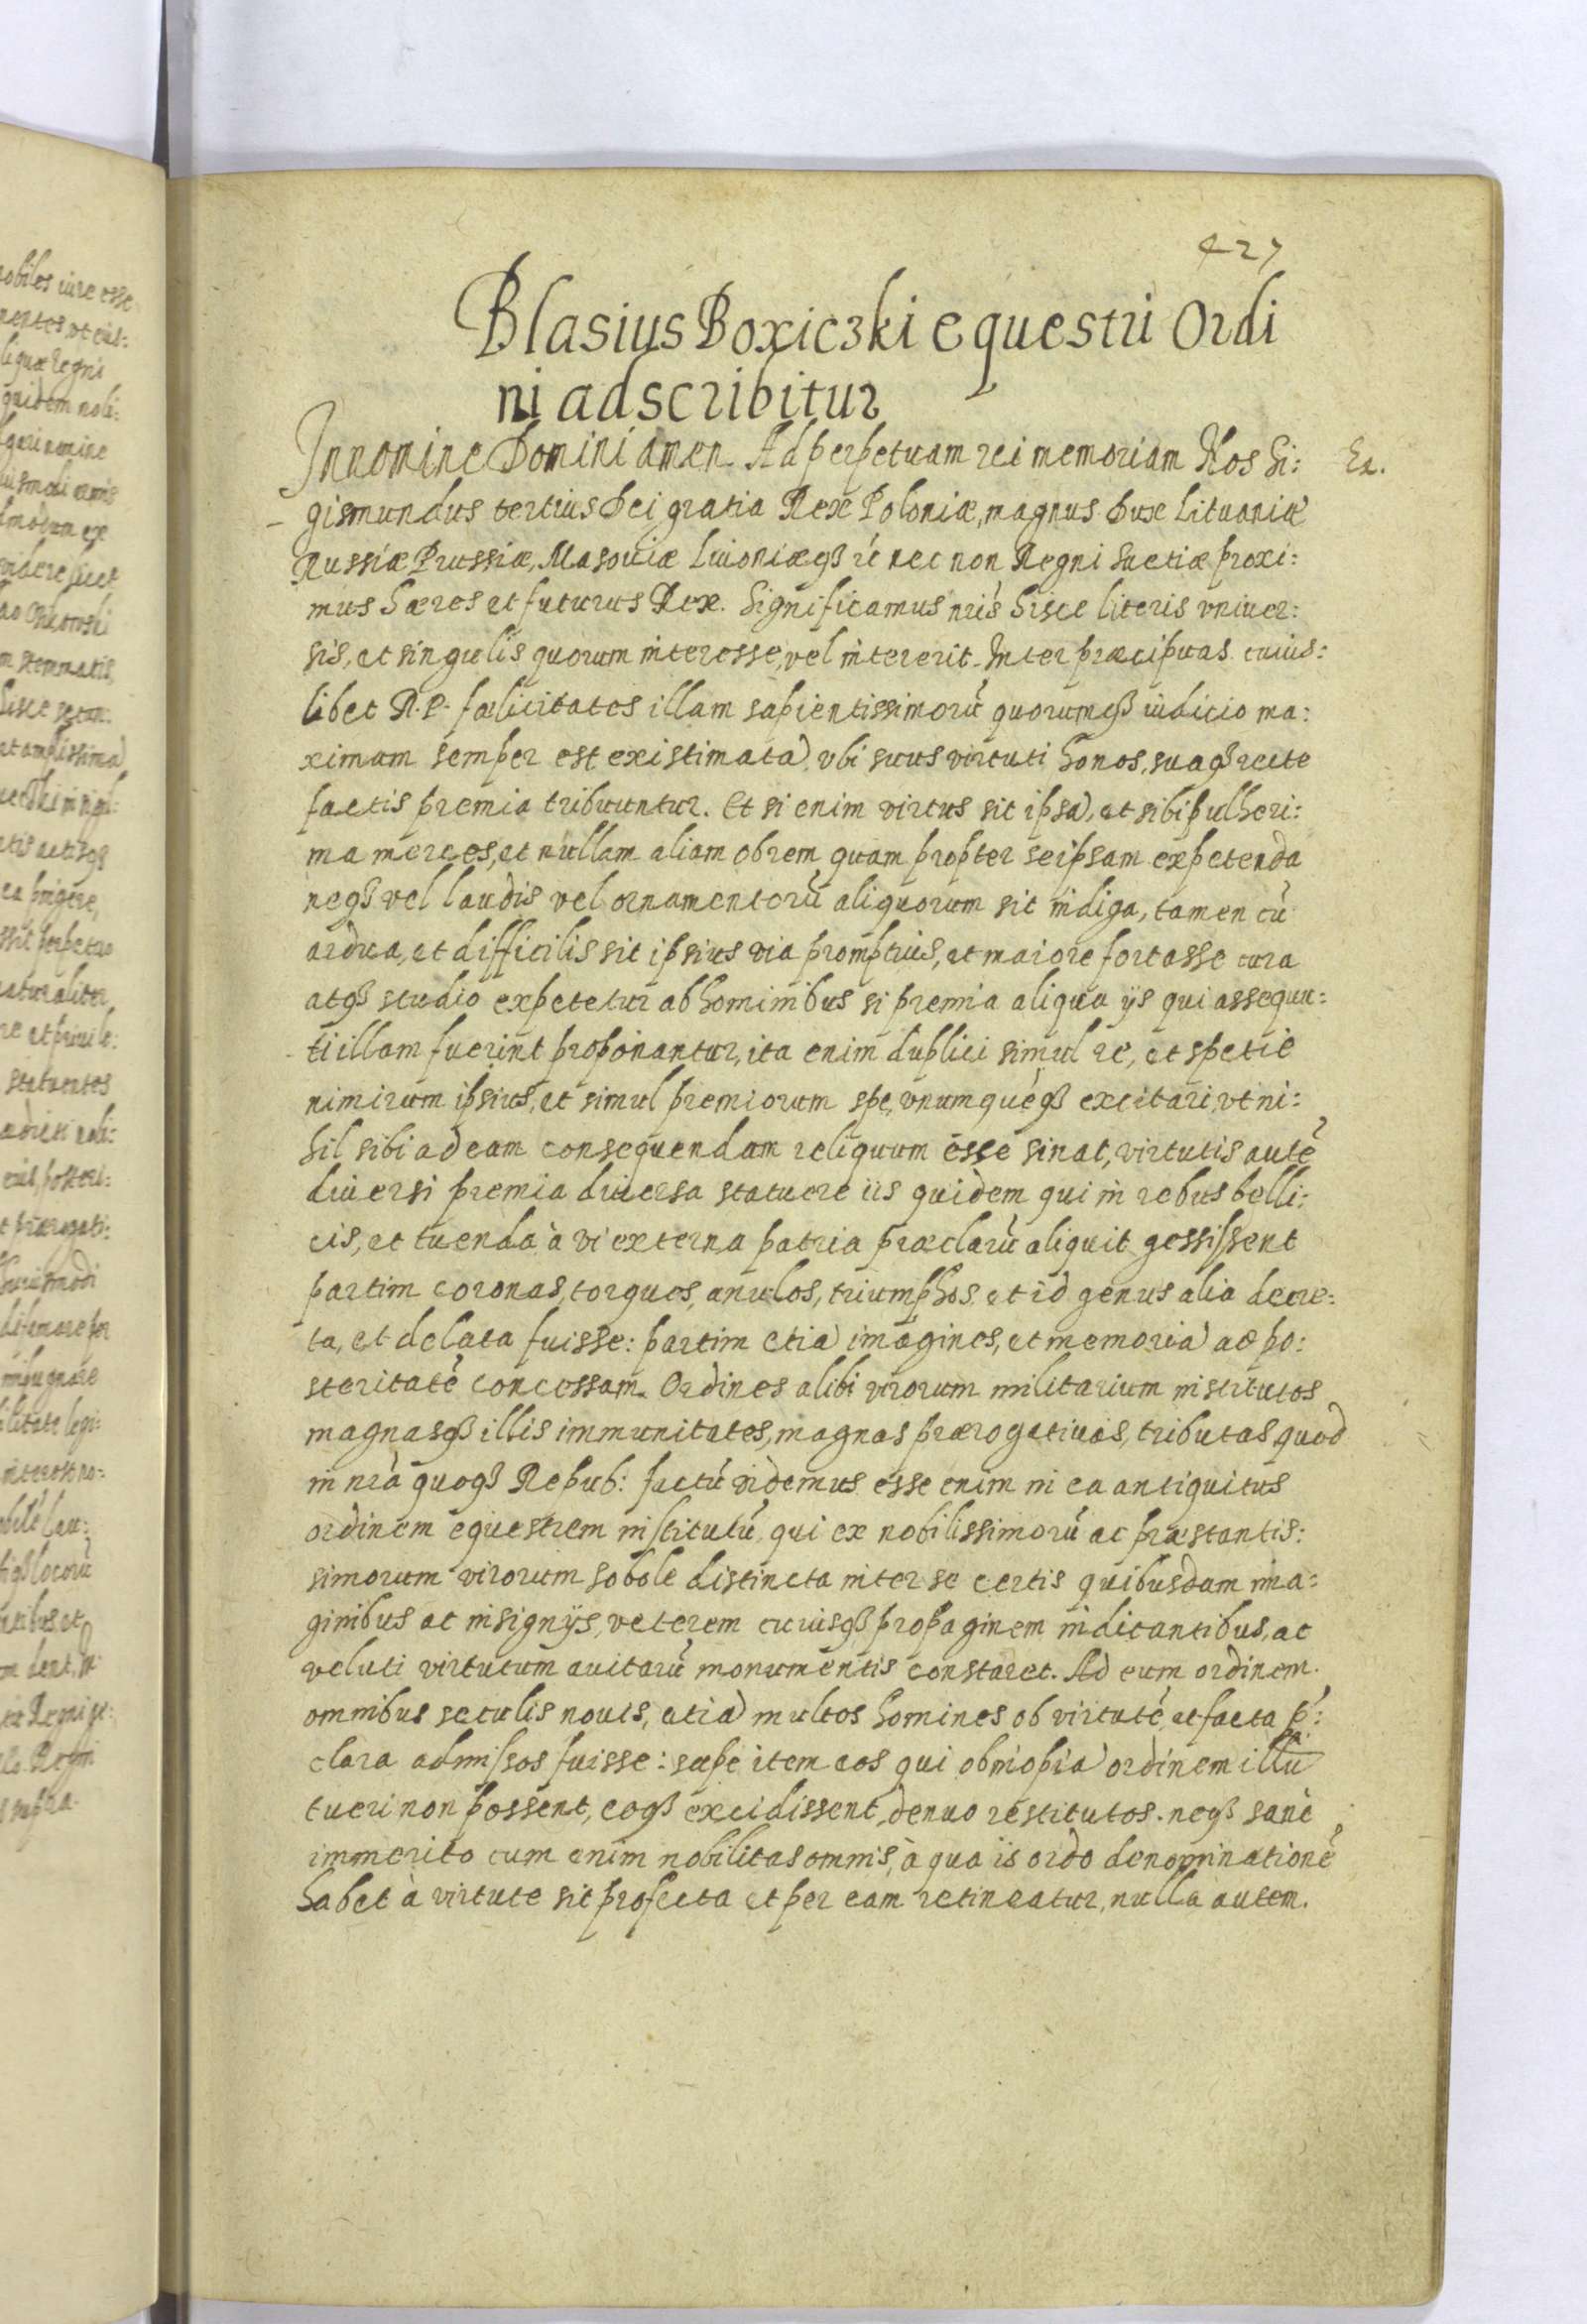 427
Blasius Boxiczki equestri Ordi
ni adscribitur
In nomine Domini amen. Ad perpetuam rei memoriam Nos Si:
gismundus tertius Dei gratia Rex Poloniæ, magnus Dux Lituaniæ
Russiæ Prussiæ, Masouiæ Liuoniæqȝ rć nec non Regni Suetiæ proxi:
mus hæres et futurus Rex. Significamus nris hisce literis vniuer:
sis, et singulis quorum interesse, vel intererit. Inter præcipuas cuius:
libet R. P. fælicitates illam sapientissimorū quorumqȝ iudicio ma:
ximam semper est existimata, vbi suus virtuti honos, suaqȝ recte
factis premia tribuuntur. Et si enim virtus sit ipsa, et sibi pulheri:
ma merces, et nullam aliam ob rem quam propter seipsam expetenda
neqȝ vel laudis vel ornamentorū aliquorum sit indiga, tamen cū
ardua, et difficilis sit ipsius via promptius, et maiore fortasse cura
atqȝ studio expetetur ab hominibus si premia aliqua ijs qui assequu:
ti illam fuerint proponantur, ita enim duplici simul re, et spetie
nimirum ipsius, et simul premiorum spe, vnumquēqȝ excitari, vt ni:
hil sibi ad eam consequendam reliquum esse sinat, virtutis autē
diuersi premia diuersa statuere iis quidem qui in rebus belli:
cis, et tuenda à vi externa patria præclarū aliquit gessissent
partim coronas, torques, anulos, triumphos et id genus alia decre:
ta, et delata fuisse: partim etiā imagines, et memoriā ac po:
steritatē concessam. Ordines alibi virorum militarium institutos
magnasqȝ illis immunitates, magnas prærogatiuas, tributas quod
in nrā quoqȝ Repub: factū videmus esse enim in ea antiquitus
ordinem equestrem institutū, qui ex nobilissimorū ac præstantis:
simorum virorum sobole distincta inter se certis quibusdam ima:
ginibus ac insignijs, veterem cuiusqȝ propaginem indicantibus, ac
veluti virtutum auitarū monumentis constaret. Ad eum ordinem
omnibus seculis nouis, etiā multos homines ob virtutē, et facta p:
clara admissos fuisse: sæpe item eos qui ob inopiā ordinem illū
tueri non possent, eoqȝ excidissent, denuo restitutos. neqȝ sanè
immerito cum enim nobilitas omnis, à qua is ordo denominationē
habet à virtute sit profecta et per eam retineatur, nulla autem.